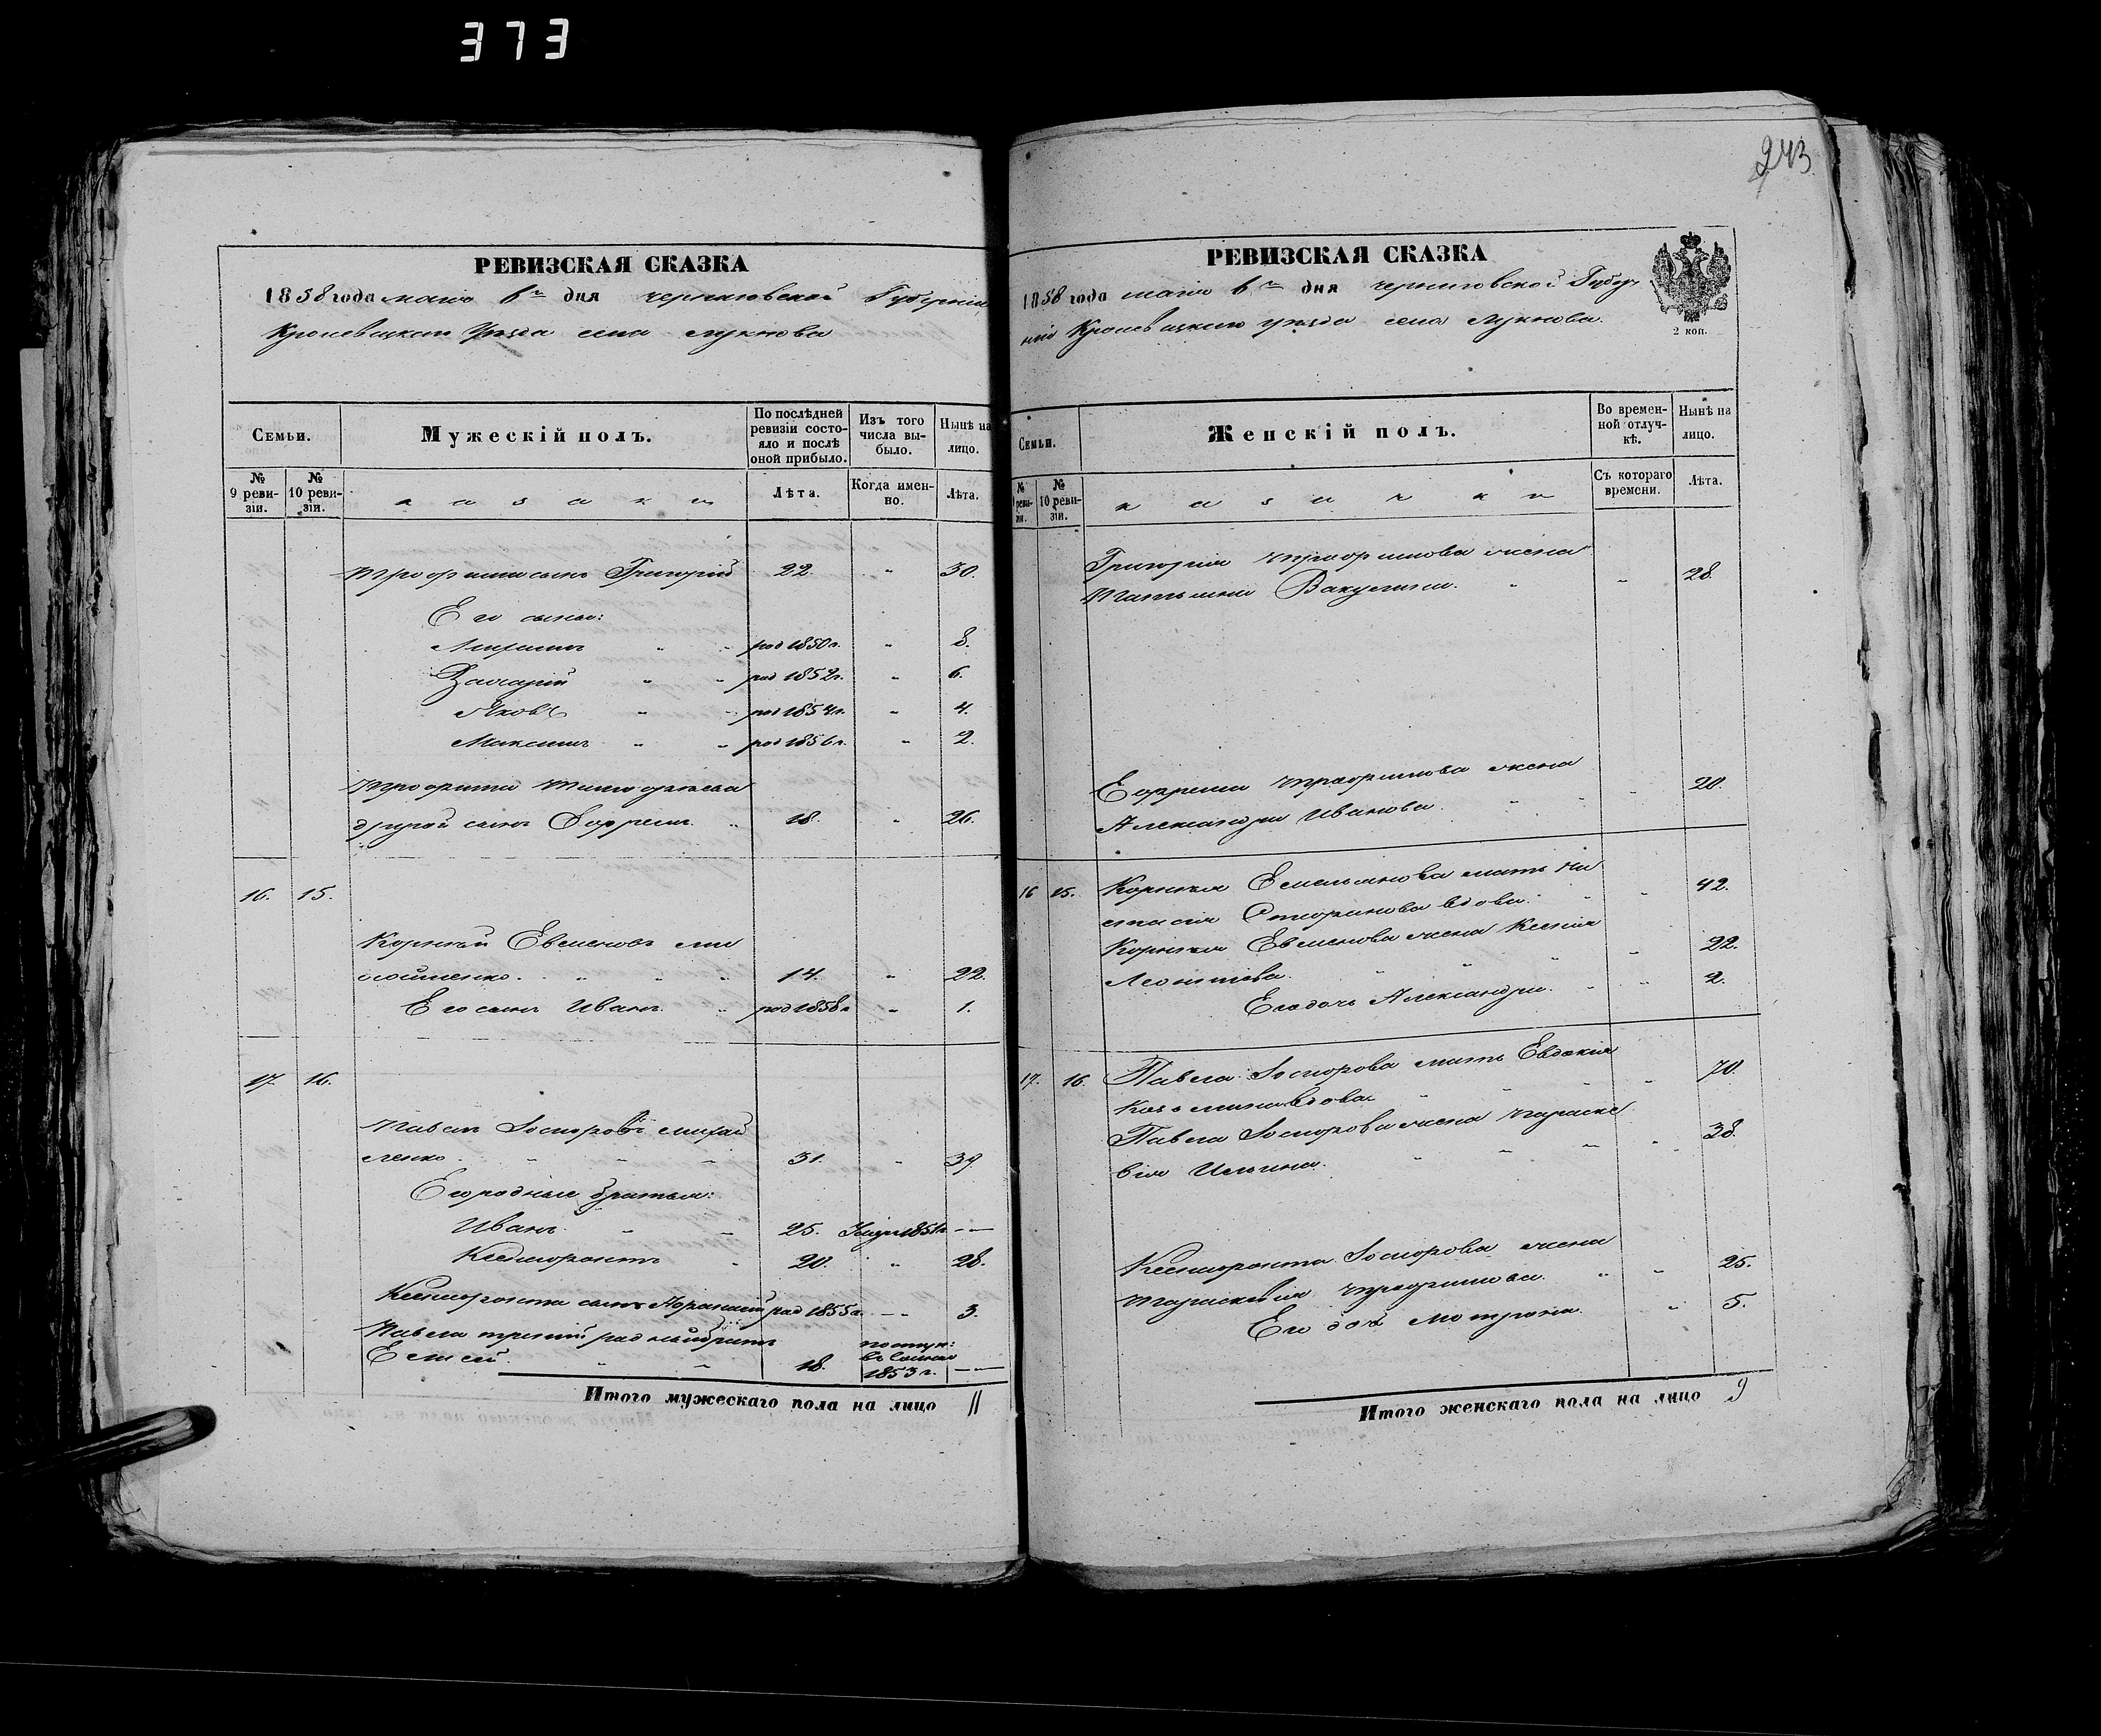 373
РЕВИЗСКАЯ СКАЗКА
1858 года маия 6го дня Черниговской Губерніи
Кролевецкаго Уезда села Лукнова
Семьи.
Мужескій полъ.
По послѣдней ревизіи состояло и послѣ оной прибыло.
Изъ того числа выбыло.
Нынѣ на лицо.
№ 9 ревизіи.
№ 10 ревизіи.
казаки
Лѣта.
Когда именно.
Лѣта.
Трофима сынъ Григорій 22. " 30.
Его сыны:
род 1850 г. " 8.
Захарій " " род 1852 г. " 6.
Яковъ " " род 1854 г. " 4.
Максимъ " " род 1856 г. " 2.
Трофима Тимофѣева
другой сынъ Ефремъ. " 18. " 26.
16. 15.
Корнѣй Евменовъ
14. " 22.
Его сынъ Иванъ. " род 1858 г. " 1.
17. 16.
Павелъ Сидоровъ Михай
ленко. " " " 31. " 39.
Его родные братья:
Иванъ. " " 25. 1851 г. —
Ксенофонтъ " 20. " 28.
Ксенофонта сынъ Афанасій род 1855 г. — 3.
Павла третій родный братъ
Елисей. " " 18. поступ: въ 1853 г. —
Итого мужескаго пола на лицо 11
243
РЕВИЗСКАЯ СКАЗКА
1858 года маия 6го дня Черниговской Губер
ніи Кролевецкаго уезда села Лукнова.
2 коп.
Семьи.
Женскій полъ.
Во временной отлучкѣ.
Нынѣ на лицо.
№ 9 ревизіи.
№ 10 ревизіи.
казачки
Съ котораго времени.
Лѣта.
Григорія Трофимова жена
Татьяна Вакулина. " " 28.
Ефрема Трофимова жена
Александра Иванова. " " " 20.
16 15. Корнѣя мать На
стасія вдова. " " 42.
Корнѣя Евменова жена Ксенія
Леонтіева. " " " " 22.
Его дочь Александра. " " 2.
17. 16. Павла Сидорова мать Евдокія
Козьмина вдова. " " " " 70.
Павла Сидорова жена Параске
вія Ильина. " " " " 38.
Ксенофонта Сидорова жена
Параскевія Трофимова. " " 25.
Его дочь Мотрона. " 5.
Итого женскаго пола на лицо 9